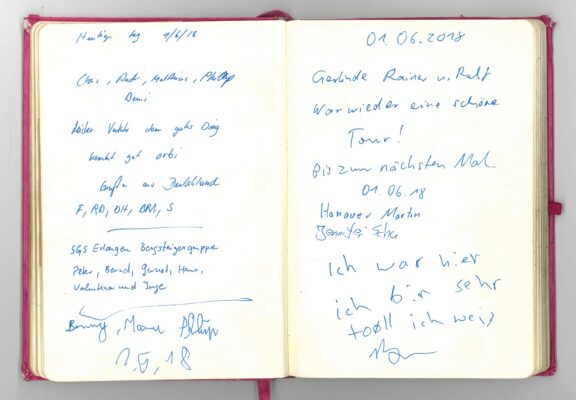 Heutiger Tag 1/6/18
Chris, Rudi, Matthias, Philipp
Leider
aber gutes Ding
kommt gut
Grüße aus Deutschland
F, RD, DH, BRA, S
SGS Erlangen Bergsteigergruppe
Peter, Bernd, Gernot, Hans,
Valentina und Inge
1. 6. 18
01.06.2018
Gerlinde Rainer u. Ralf
War wieder eine schöne
Tour!
Bis zum nächsten Mal
01.06.18
Hanauer Martin
Jennifer
Ich war hier
ich bin sehr
tooll ich weis